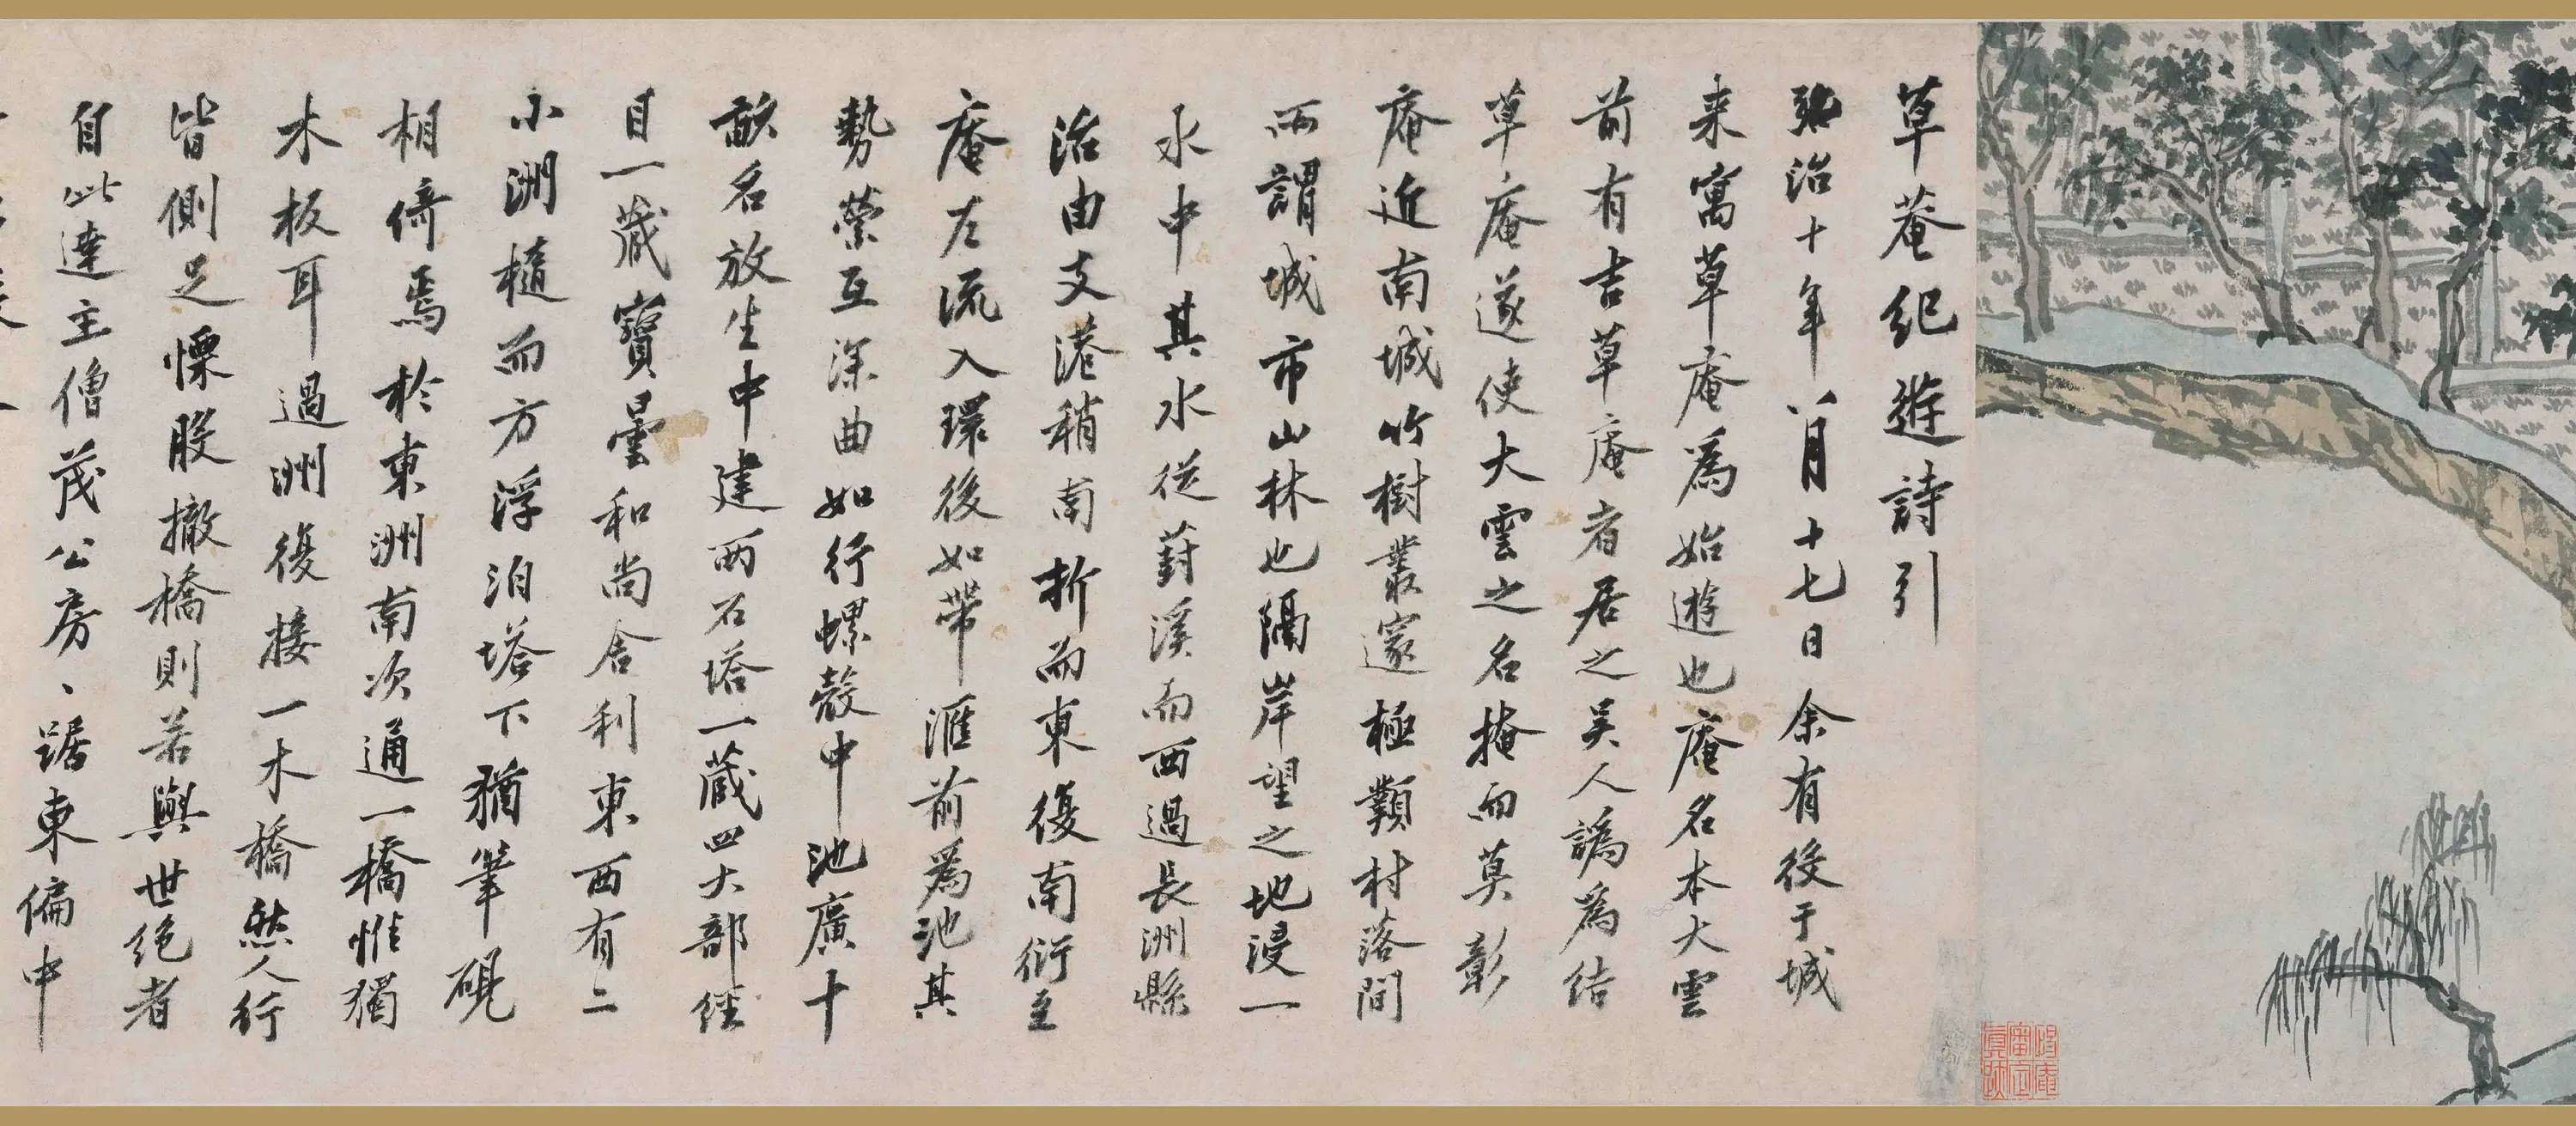 草菴紀遊詩引
弘治十年八月十七日余有役于城
来寓草庵為始遊也庵名本大雲
前有吉草庵者居之吴人譌為結
草庵遂使大雲之名掩而莫彰
庵近南城竹樹叢邃極類村落間
而謂城市山林也隔岸望之地浸一
水中其水從葑溪而西過長洲縣
治由支港稍南折而東復南衍至
庵左流入環後如帶滙前為池其
勢縈互深曲如行螺殼中池廣十
畝名放生中建兩石塔一藏四大部經
目一藏寶曇和尚舍利東西有二
小洲椭而方浮泊塔下猶筆硯
相倚焉於東洲南次通一橋惟獨
木板耳過洲復接一木橋然人行
皆側足慄股撤橋則若與世絕者
自此達主僧茂公房、踞東偏中